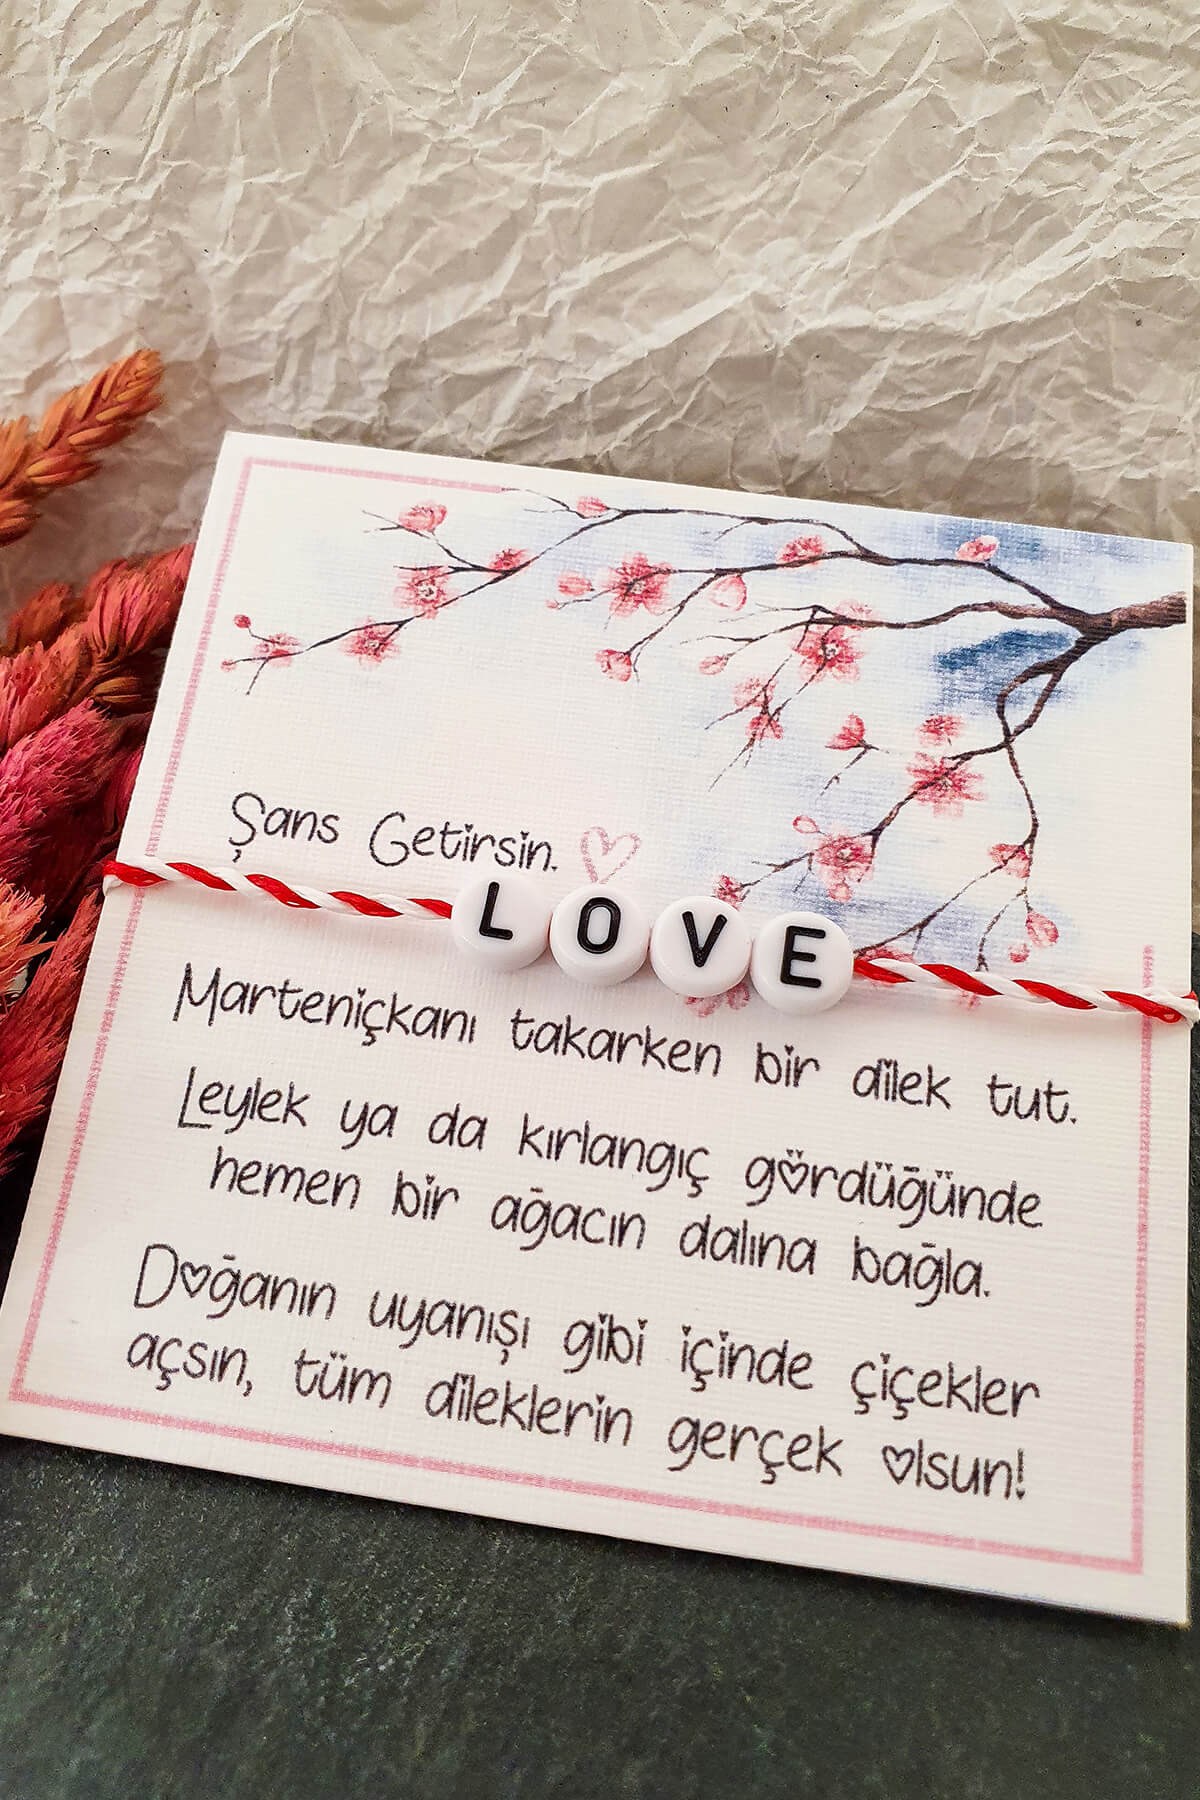 Şans Getirsin.
LOVE
Marteniçkanı takarken bir dilek tut.
Leylek ya da kırlangıç gördüğünde
hemen bir ağacın dalına bağla.
Doğanın uyanışı gibi içinde çiçekler
açsın, tüm dileklerin gerçek olsun!